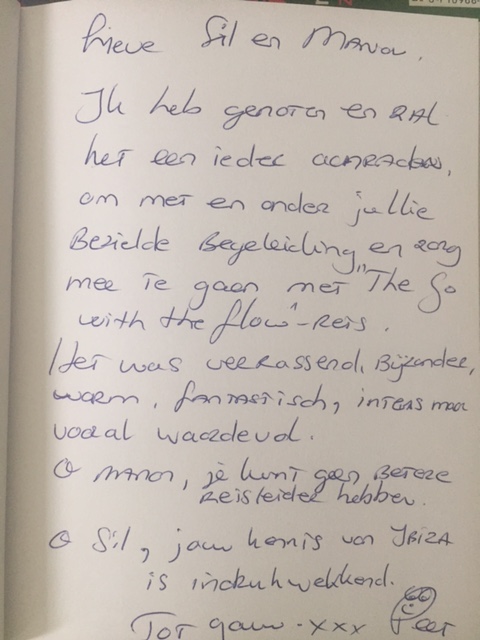 Lieve Sil en Manon,
Ik heb genoten en zal
het een ieder aanraden,
om met en onder jullie
Bezielde Begeleiding en zorg
mee te gaan met "The Go
with the flow"-Reis.
Het was verrassend, Bijzonder,
warm, fantastisch, intens maar
vooral waardevol.
O Manon, je kunt geen Betere
Reisleider hebben.
O Sil, jouw kennis van IBIZA
is indrukwekkend.
Tot gauw - xxx Peet